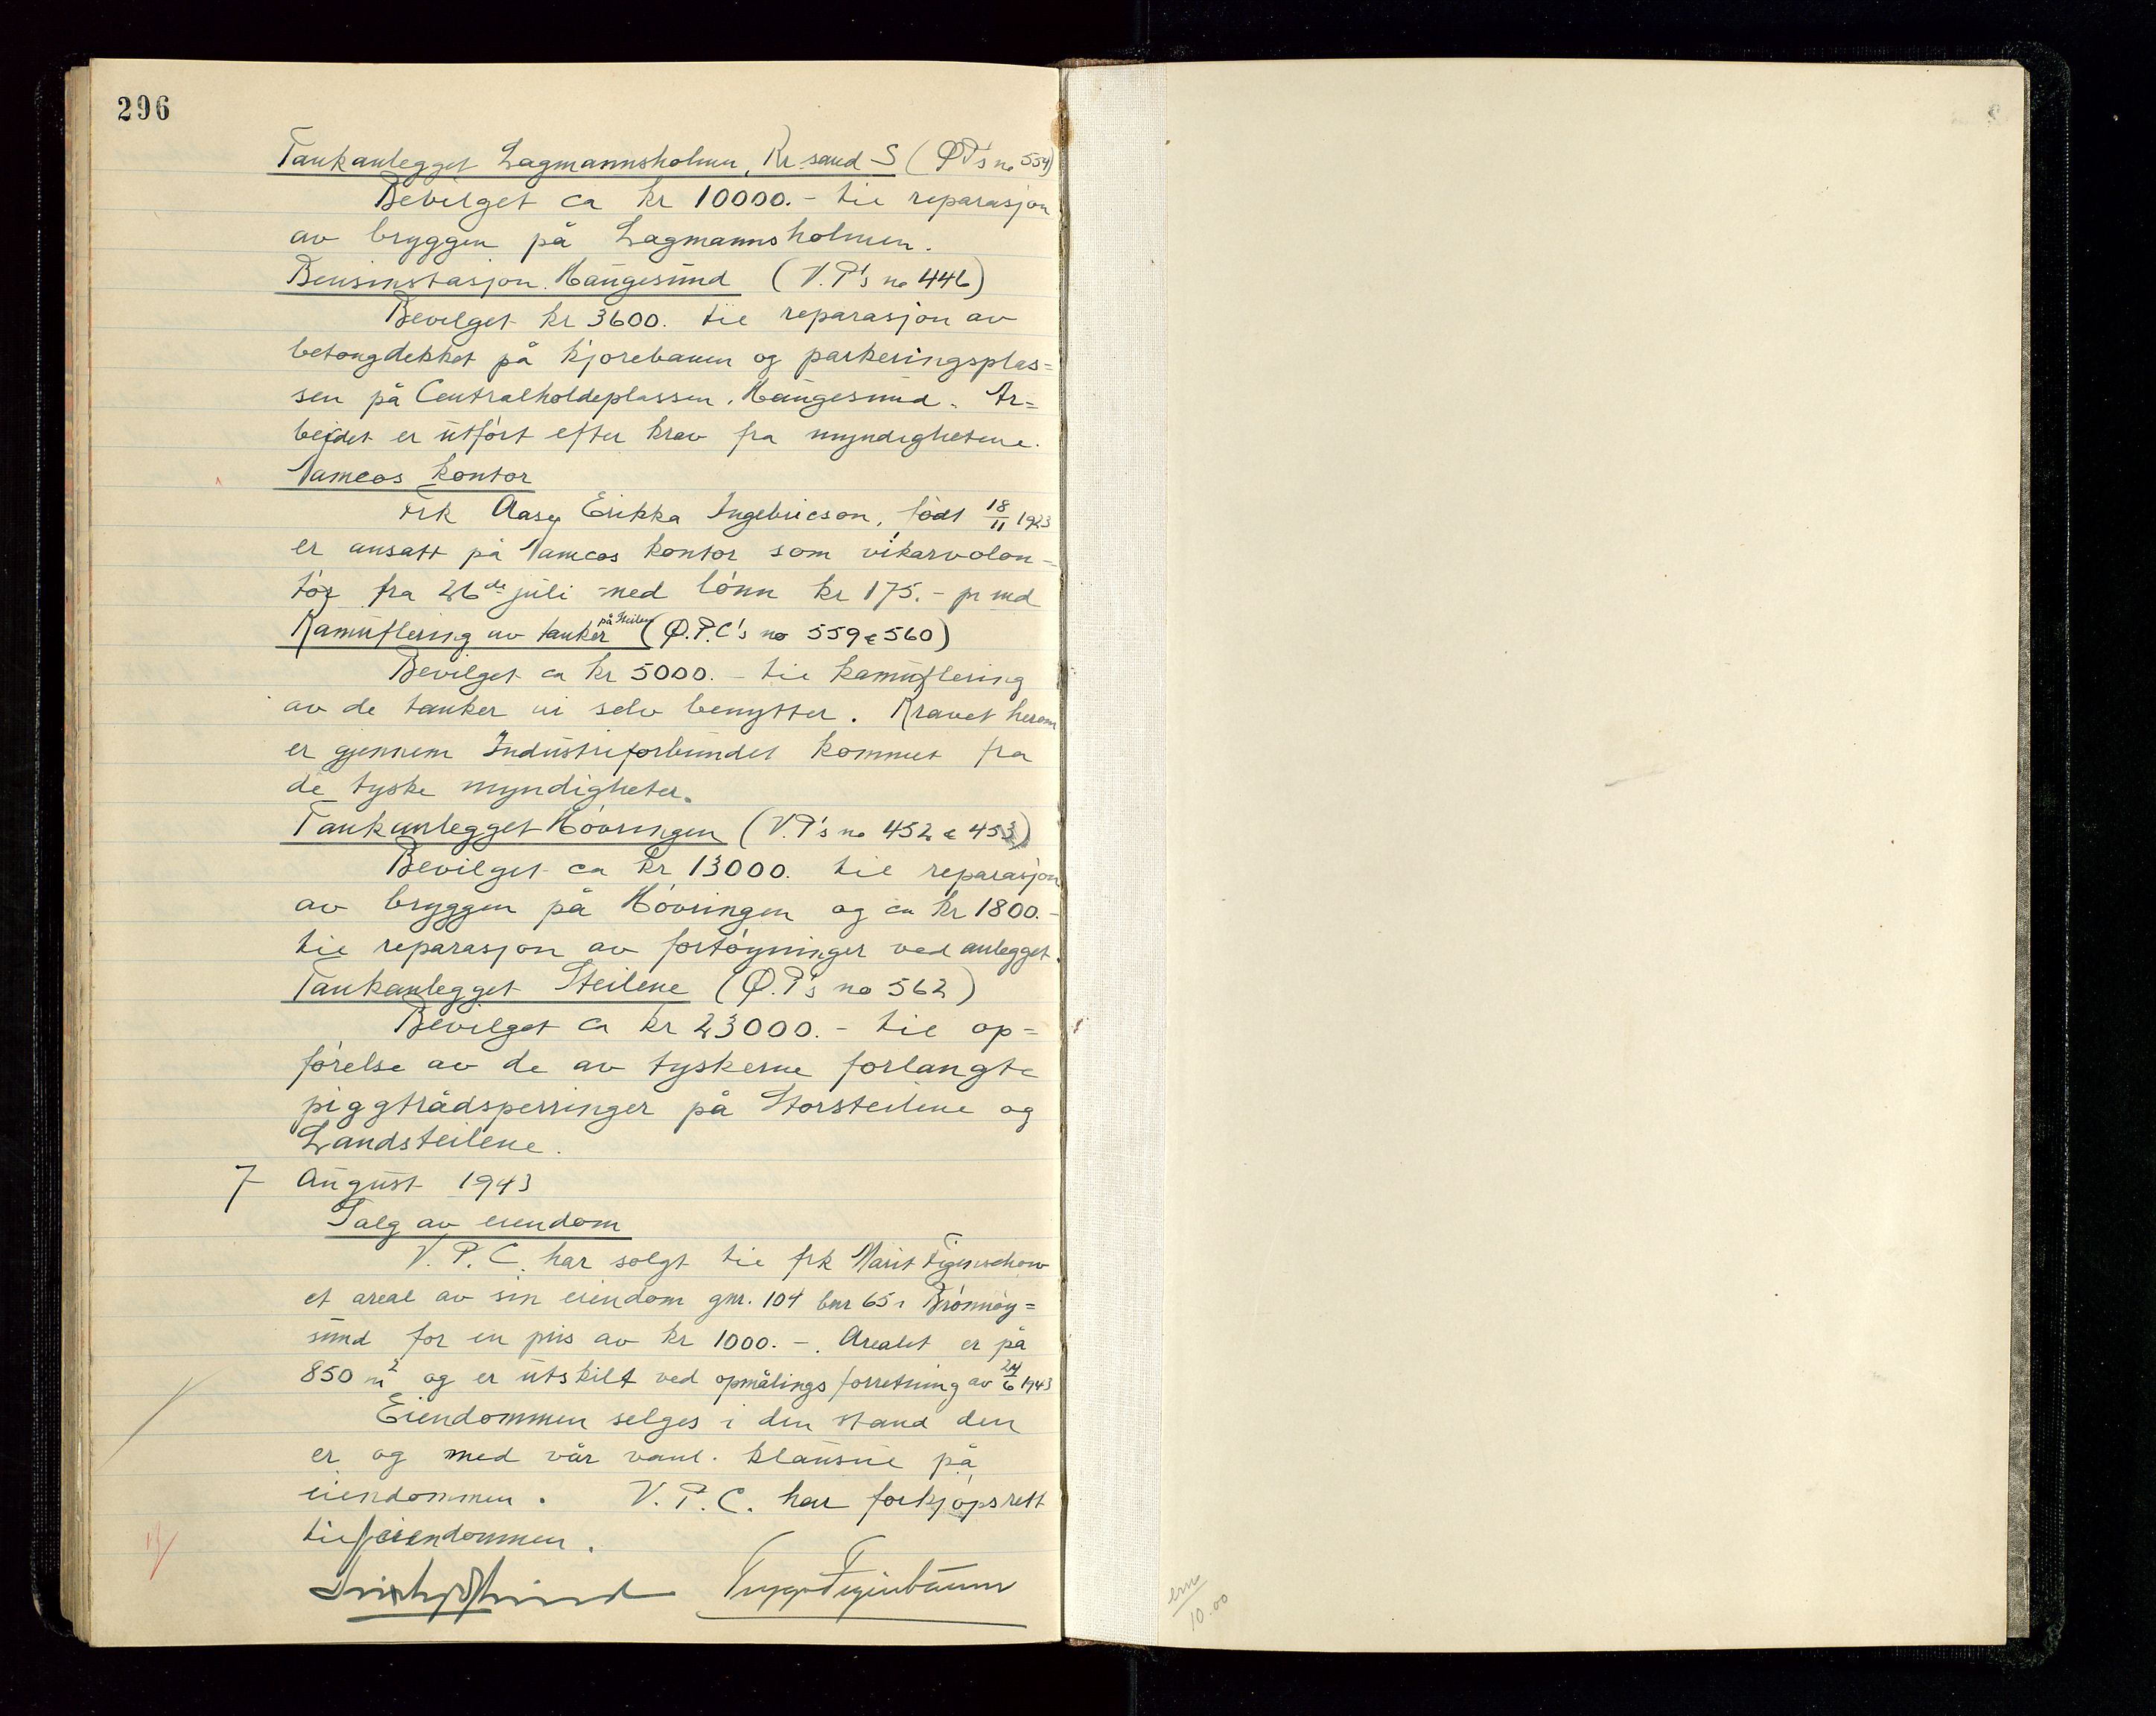 296
Tankanlegget Lagmannsholmen, Kr.sand S (Ø.P's no 554)
Bevilget ca kr 10000.- til reparasjon
av bryggen på Lagmannsholmen.
Bensinstasjon. Haugesund (V.P's no 446)
Bevilget kr 3600. til reparasjon av
betongdekket på kjørebanen og parkeringsplas=
sen på Centralholdeplassen, Haugesund. Ar=
beidet er utført efter krav fra myndighetene.
kontor
Frk Aasy Erikka Ingebricson, født 18/11 1923
er ansatt på kontor som vikarvolon=
tør fra 26de juli med lønn kr 175.- pr md
Kamuflering av tanker på Steilene (Ø.P.C's no 559 & 560)
Bevilget ca kr 5000.- til kamuflering
av de tanker vi selv benytter. Kravet herom
er gjennem Industriforbundet kommet fra
de tyske myndigheter.
Tankanlegget Høvringen (V.P's no 452 & 453)
Bevilget ca kr 13000. til reparasjon
av bryggen på Høvringen og ca kr 1800.-
til reparasjon av fortøyninger ved anlegget.
Tankanlegget Steilene (Ø.P's no 562)
Bevilget ca kr 23000.- til op=
førelse av de av tyskerne forlangte
piggtrådsperringer på Storsteilene og
Landsteilene.
7 August 1943
Salg av eiendom
V.P.C. har solgt til frk Marit Figenschow
et areal av sin eiendom gnr. 104 bnr 65 i Brønnøy=
sund for en pris av kr 1000.-. Arealet er på
850 m2 og er utskilt ved opmålingsforretning av 24/6 1943
Eiendommen selges i den stand den
er og med vår vanl. klausul på
eiendommen. V.P.C. har forkjøpsrett
til eiendommen.
10.00